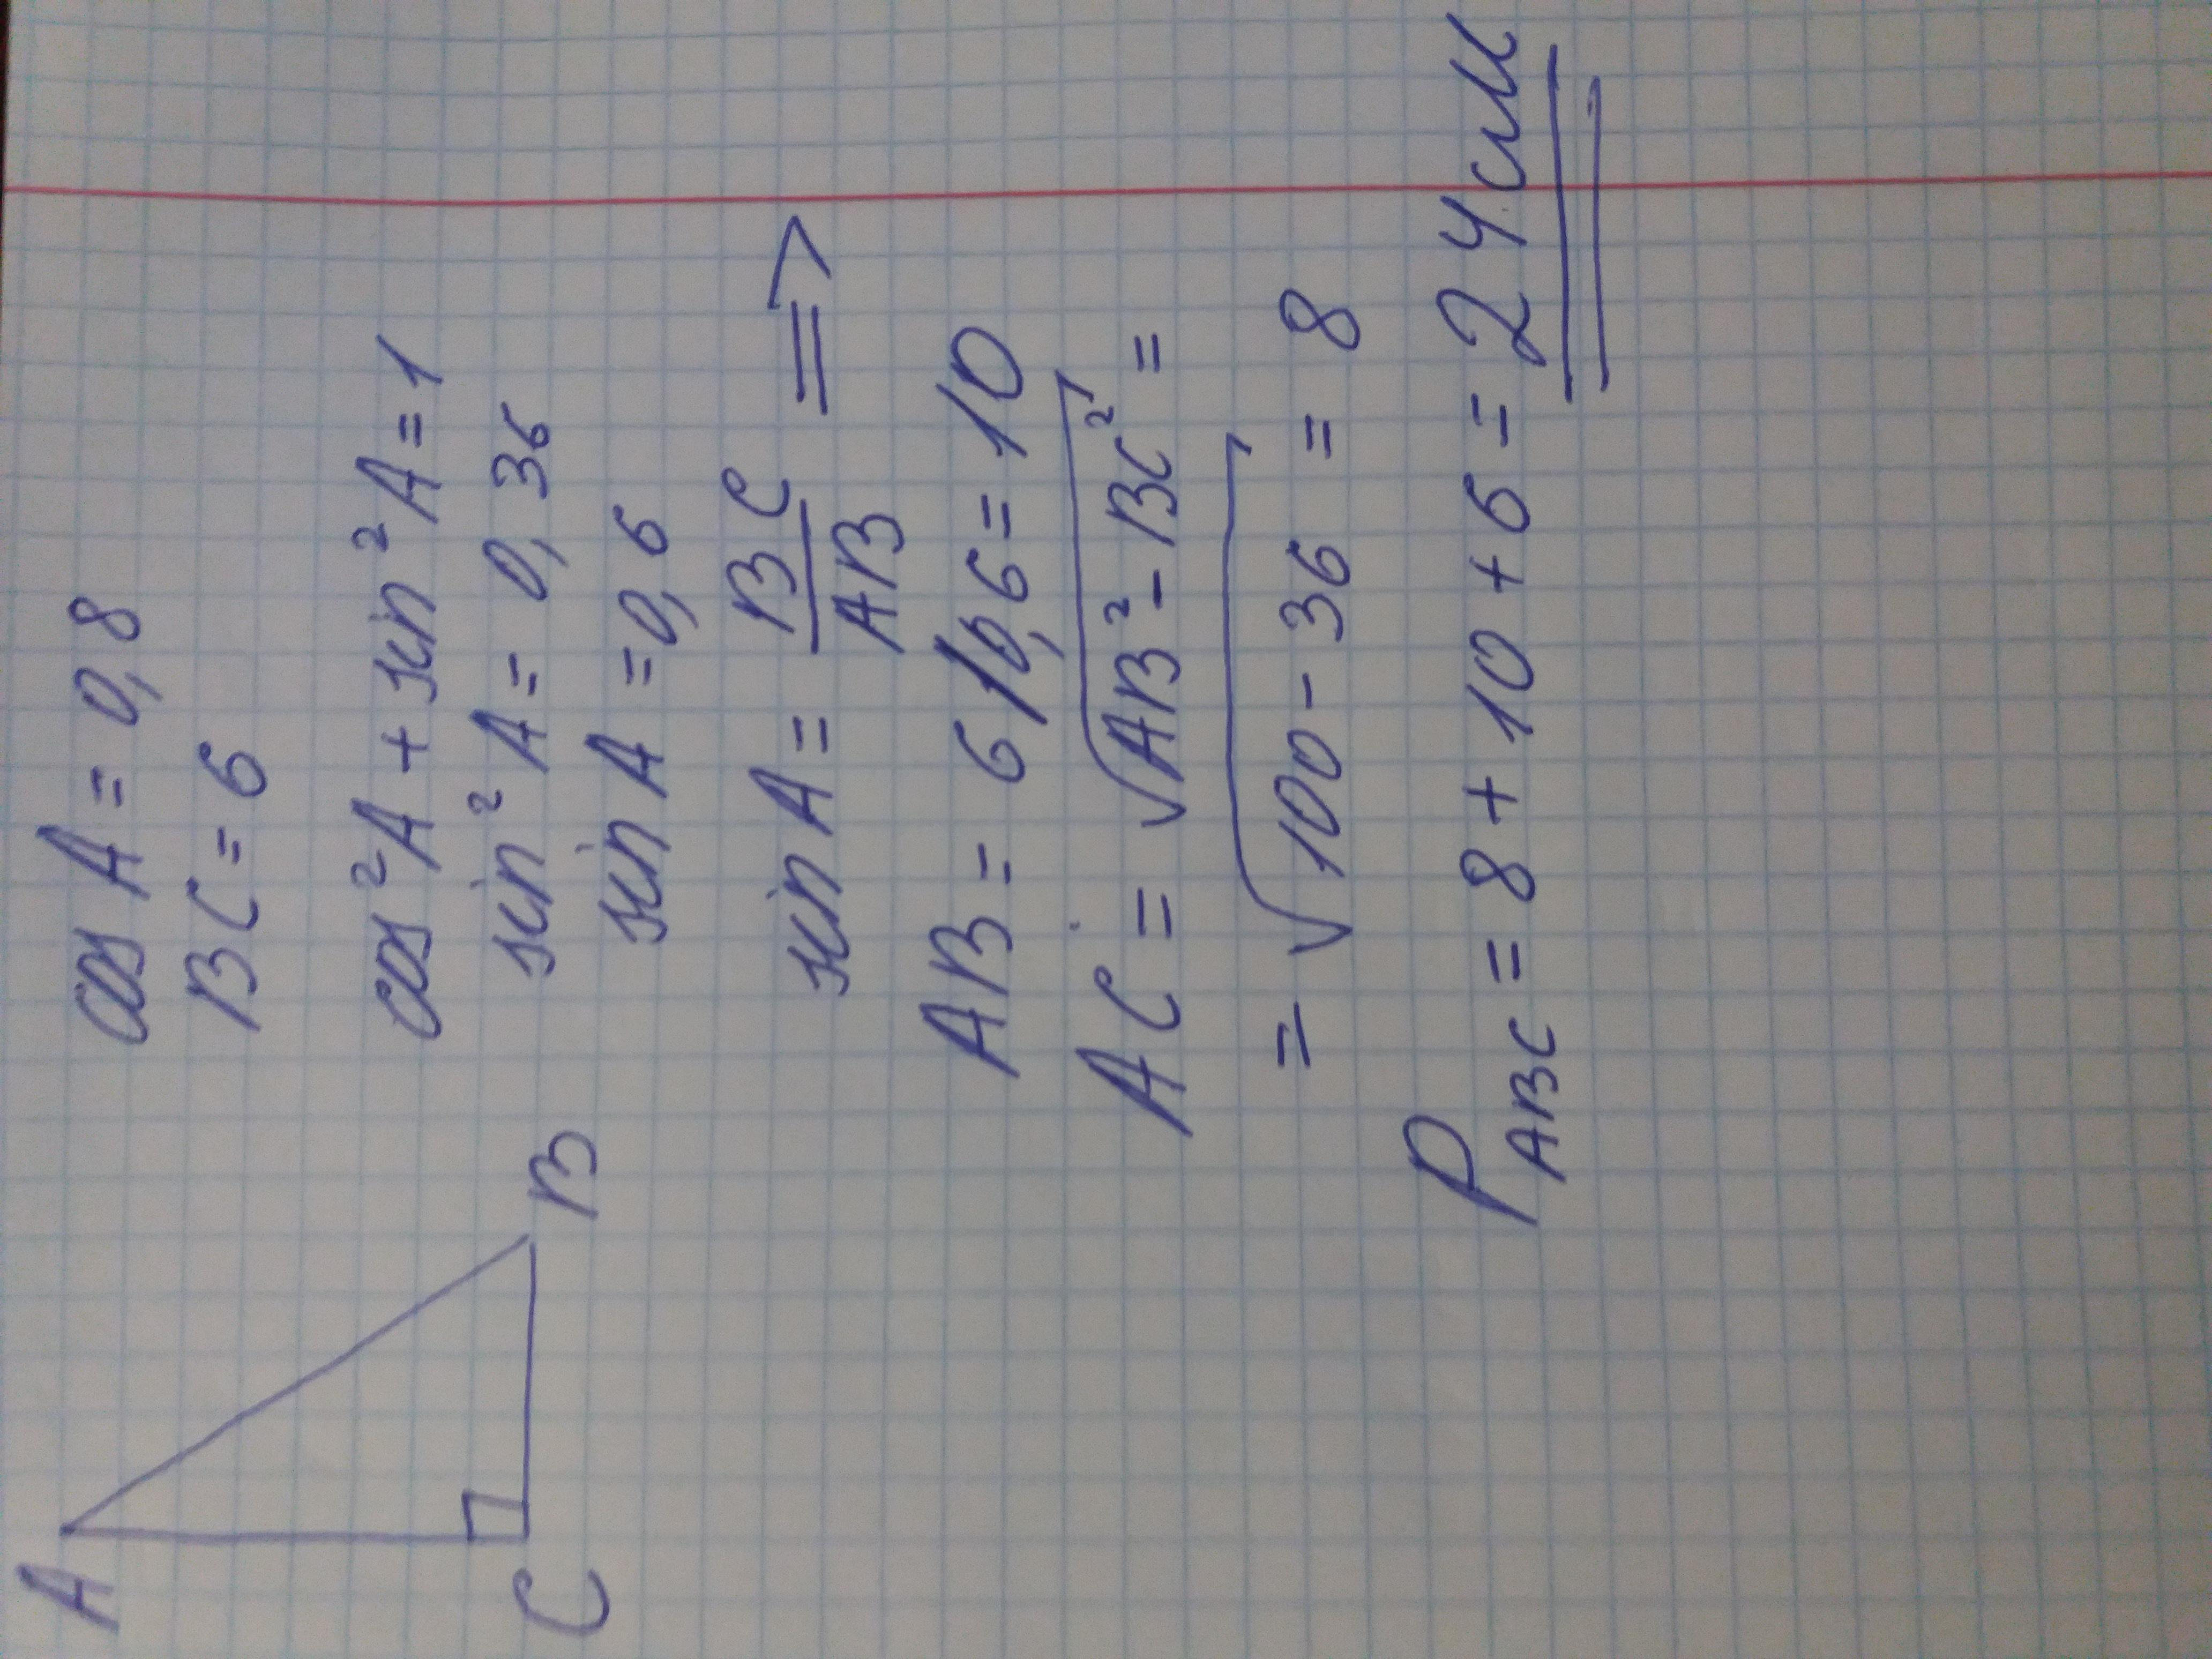 A
C
B
cos A = 0,8
BC = 6
cos²A + sin²A = 1
sin²A = 0,36
sin A = 0,6
sin A = BC/AB =>
AB = 6/0,6 = 10
AC = √AB² - BC² =
= √100 - 36 = 8
P ABC = 8 + 10 + 6 = 24 см